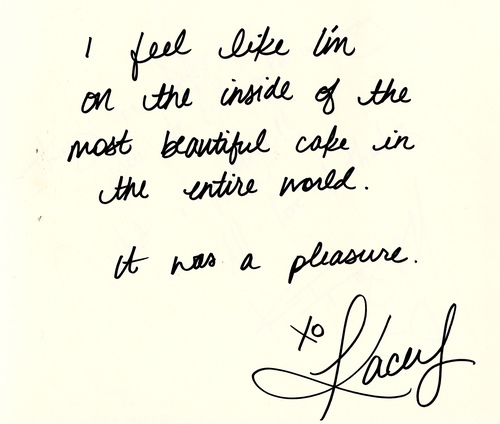 I feel like I'm
on the inside of the
most beautiful cake in
the entire world.
It was a pleasure.
xo
Kacey